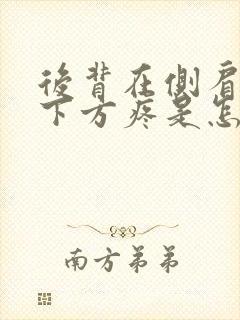 後背在側肩
下方疼是怎
南方弟弟